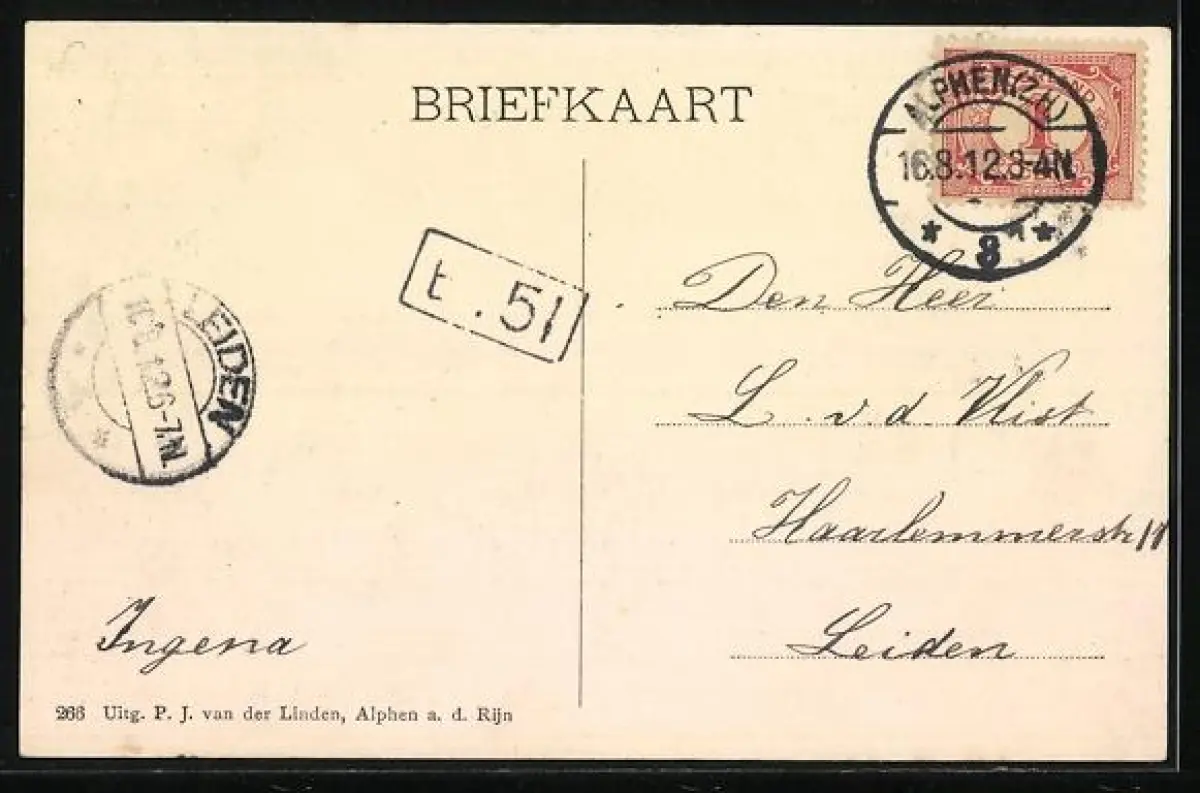 BRIEFKAART
ALPHEN (Z.H.)
16.8.12.3-4N.
* 8 *
1
t. 51
LEIDEN
16.8.12.6-7.N.
Den Heer
L. v. d. Vlist
Haarlemmerstr
Leiden
Ingena
266 Uitg. P. J. van der Linden, Alphen a. d. Rijn